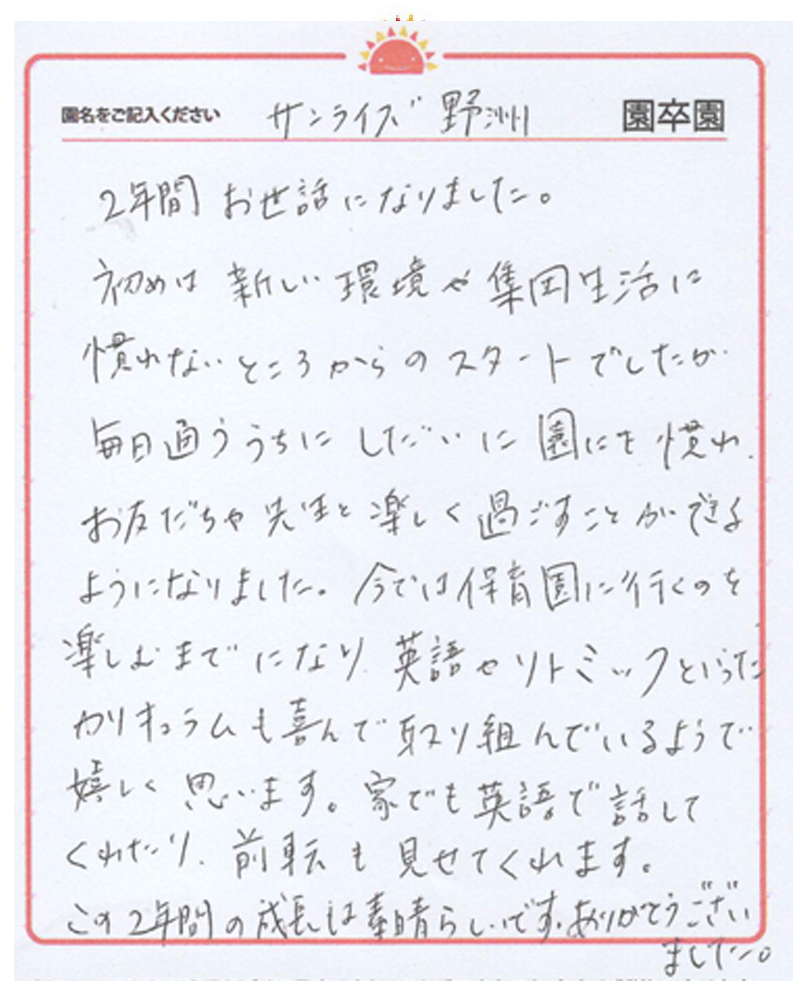 園名をご記入ください サンライズ 野洲 園卒園
2年間 お世話になりました。
初めは 新しい 環境や 集団生活に
慣れないところからのスタートでしたが
毎日通ううちに しだいに 園にも 慣れ、
お友だちや 先生と 楽しく 過ごすことができる
ようになりました。今では保育園に行くのを
楽しむまでになり、英語やリトミックといった
カリキュラムも喜んで取り組んでいるようで
嬉しく 思います。家でも英語で話して
くれたり、前転も見せてくれます。
この2年間の成長は素晴らしいです。ありがとうござい
ました。